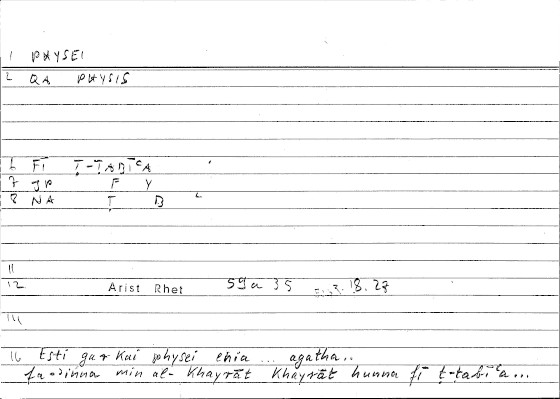 1 PHYSEI
2 QA PHYSIS
6 FĪ Ṭ-ṬABĪʿA
7 JP F Y
8 NA Ṭ B ʿ
11
12 Arist Rhet 59a 35 18.27
14
16 Esti gar kai physei enia ... agatha..
fa-ʾinna min al-khayrāt khayrāt hunna fī ṭ-ṭabīʿa...